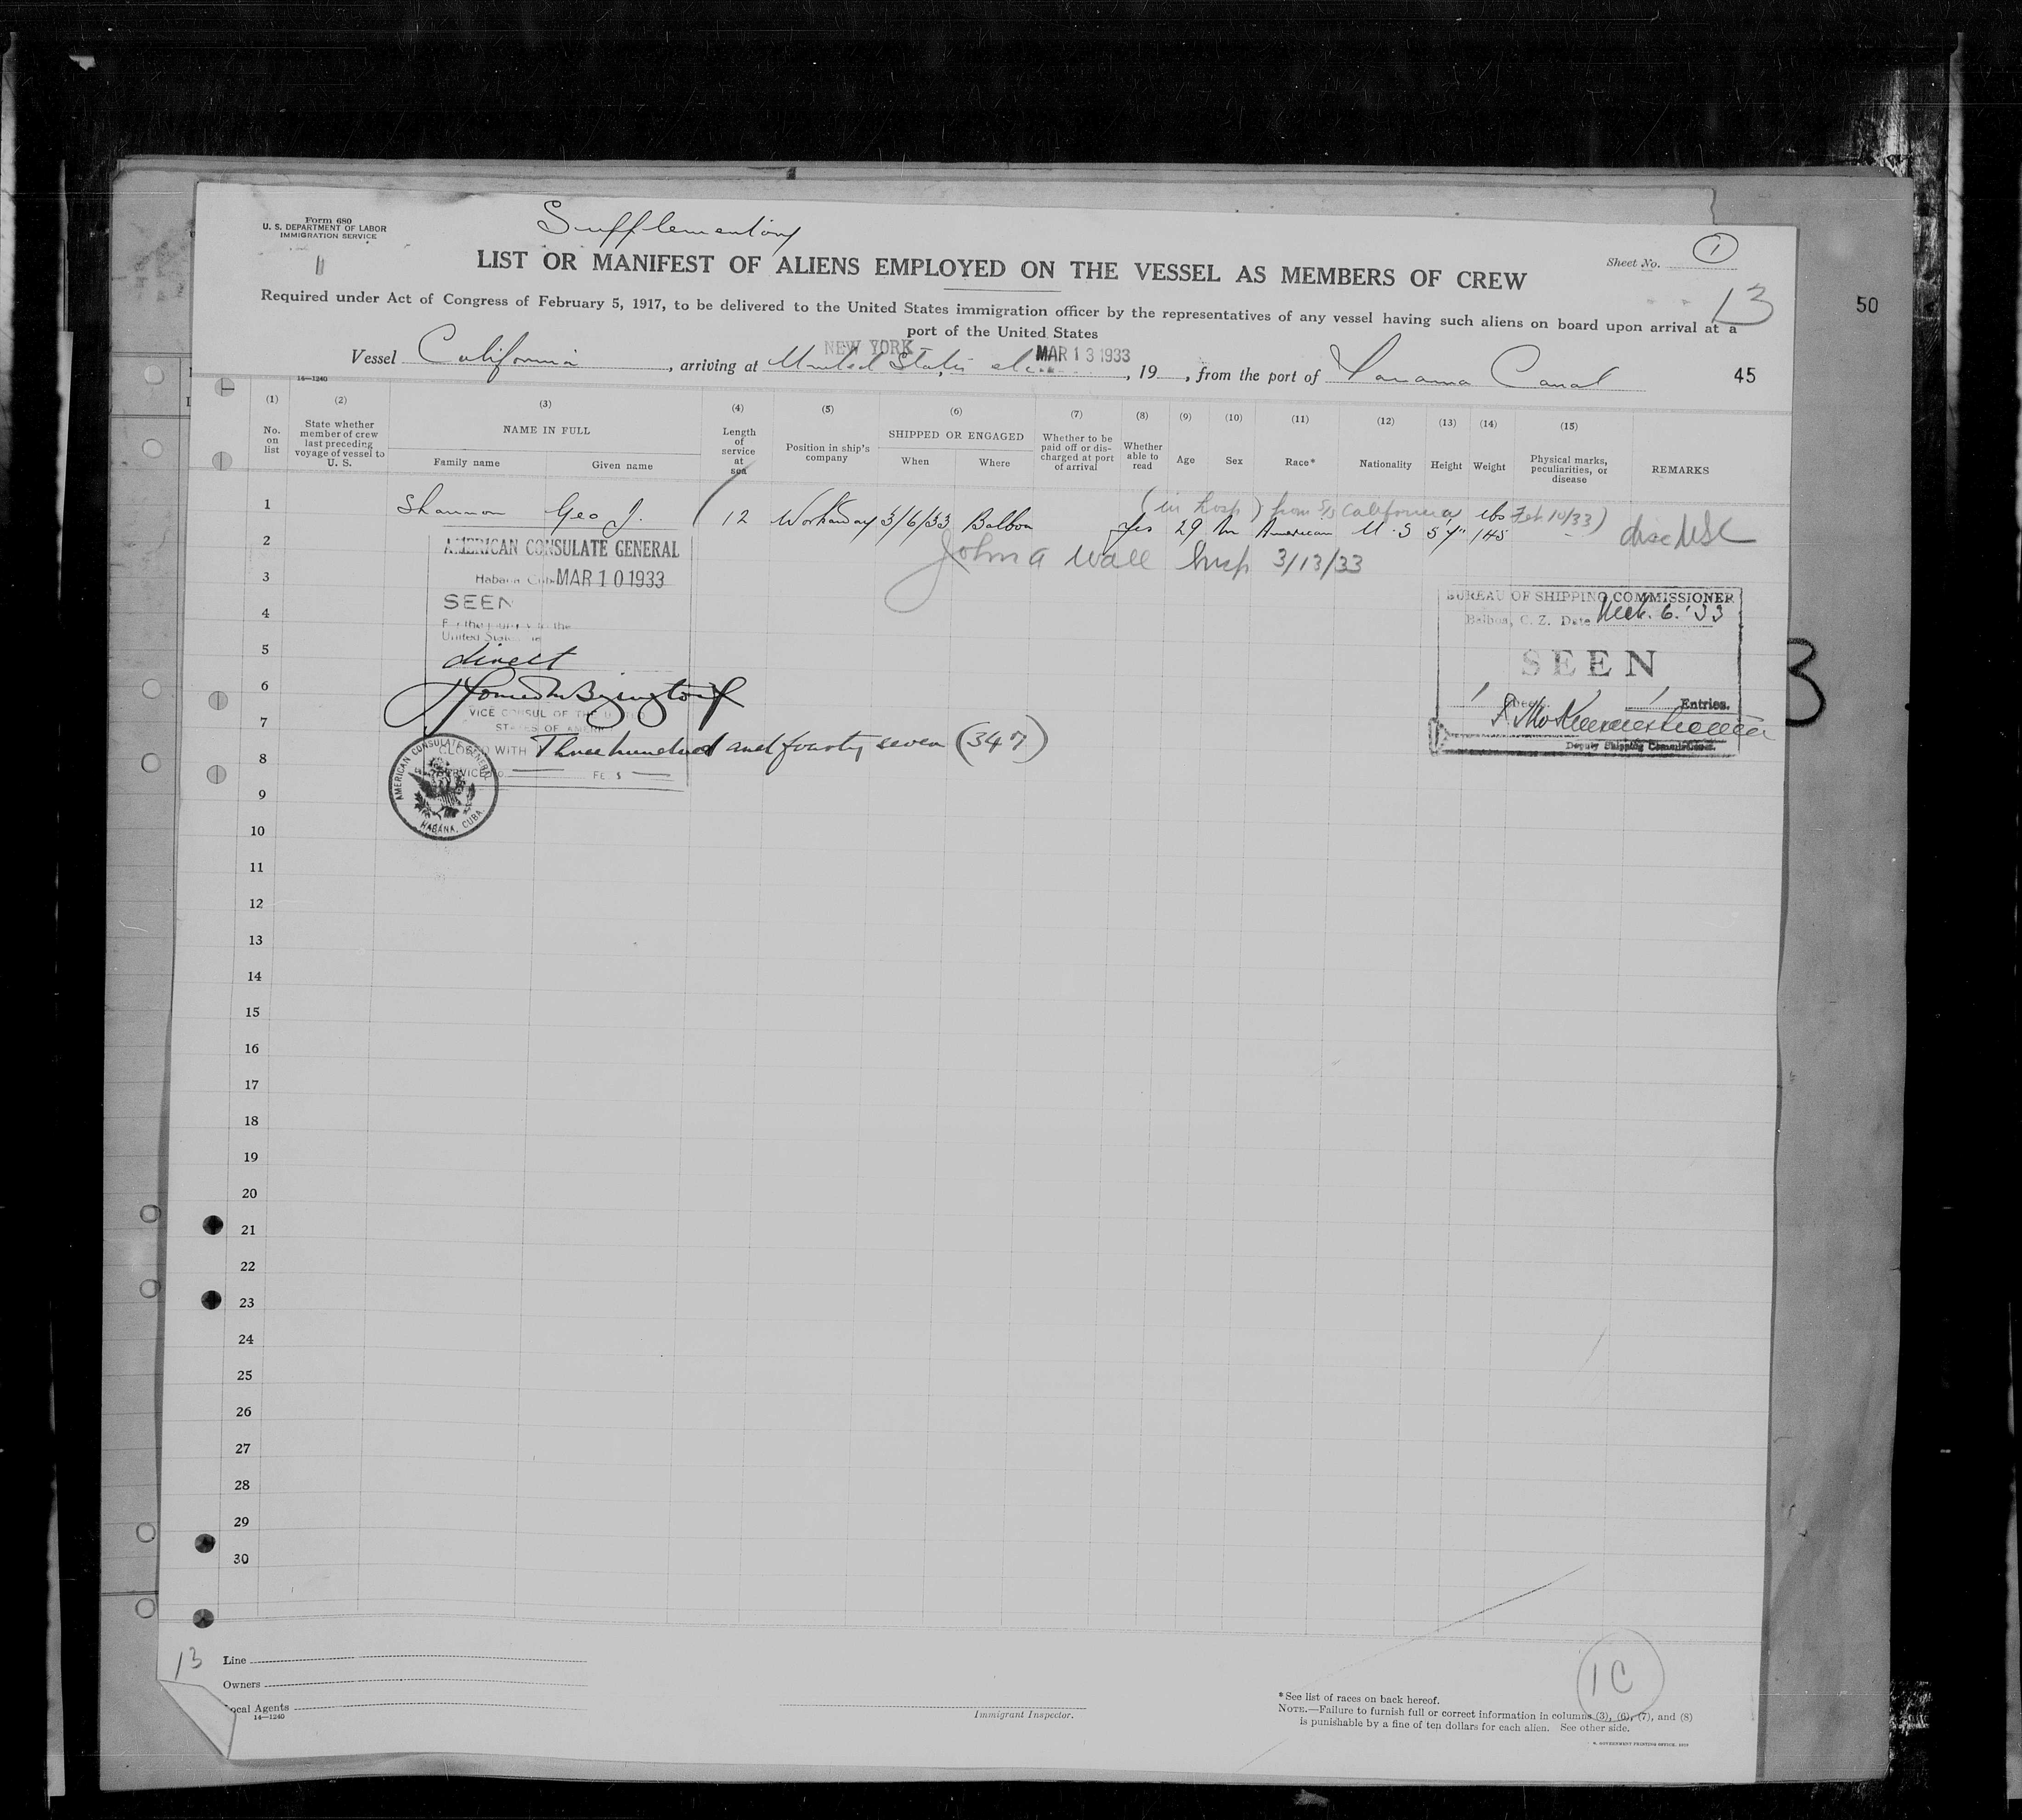 Form 680
U. S. DEPARTMENT OF LABOR
IMMIGRATION SERVICE
Supplementary
Sheet No. 1
LIST OR MANIFEST OF ALIENS EMPLOYED ON THE VESSEL AS MEMBERS OF CREW
13
50
Required under Act of Congress of February 5, 1917, to be delivered to the United States immigration officer by the representatives of any vessel having such aliens on board upon arrival at a
port of the United States
NEW YORK MAR 13 1933
Vessel California, arriving at United States, 19, from the port of Panama Canal
45
14—1240
(1) (2) (3) (4) (5) (6) (7) (8) (9) (10) (11) (12) (13) (14) (15)
No. on list
State whether member of crew last preceding voyage of vessel to U. S.
NAME IN FULL
Family name Given name
Length of service at sea
Position in ship's company
SHIPPED OR ENGAGED
When Where
Whether to be paid off or discharged at port of arrival
Whether able to read
Age
Sex
Race*
Nationality
Height
Weight
Physical marks, peculiarities, or disease
REMARKS
(in hosp) from S/S California Feb. 10/33)
1 Shannon Geo J. 12 Workaway 3/6/33 Balboa Yes 29 M American U.S 5'4" 145 lbs disc
2
John A Wall Insp 3/13/33
AMERICAN CONSULATE GENERAL
Habana Cuba MAR 10 1933
SEEN
For the journey to the
United States
direct
VICE CONSUL OF THE UNITED
STATES OF AMERICA
CLOSED WITH Three hundred and fourty seven (347)
SERVICE No. FEE $
AMERICAN CONSULATE GENERAL
HABANA, CUBA
BUREAU OF SHIPPING COMMISSIONER
Balboa, C. Z. Date Mch. 6. '33
SEEN
1 Sheets 1 Entries.
Deputy Shipping Commissioner.
3
3
4
5
6
7
8
9
10
11
12
13
14
15
16
17
18
19
20
21
22
23
24
25
26
27
28
29
30
13
Line
Owners
Local Agents
14—1240
Immigrant Inspector.
1C
*See list of races on back hereof.
NOTE.—Failure to furnish full or correct information in columns (3), (6), (7), and (8)
is punishable by a fine of ten dollars for each alien. See other side.
GOVERNMENT PRINTING OFFICE